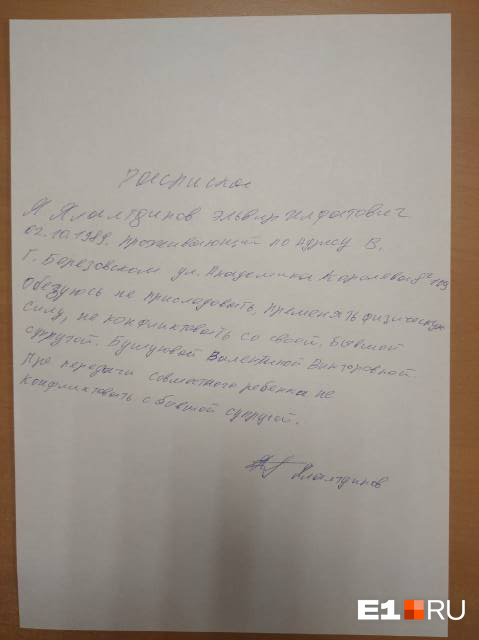 Расписка
Я Ялалтдинов Эльвир Илфатович
02.10.1989. Проживающий по адресу В.
Г. Березовском ул. Академика Королева
Обезуюсь не приследовать, пременять физическую
силу, не конфликтовать со своей, бывшой
супругой. Бушуевой Валентиной Викторовной.
Пре передачи совместного ребенка не
конфликтовать с бывшой супругой.
Ялалтдинов
E1.RU